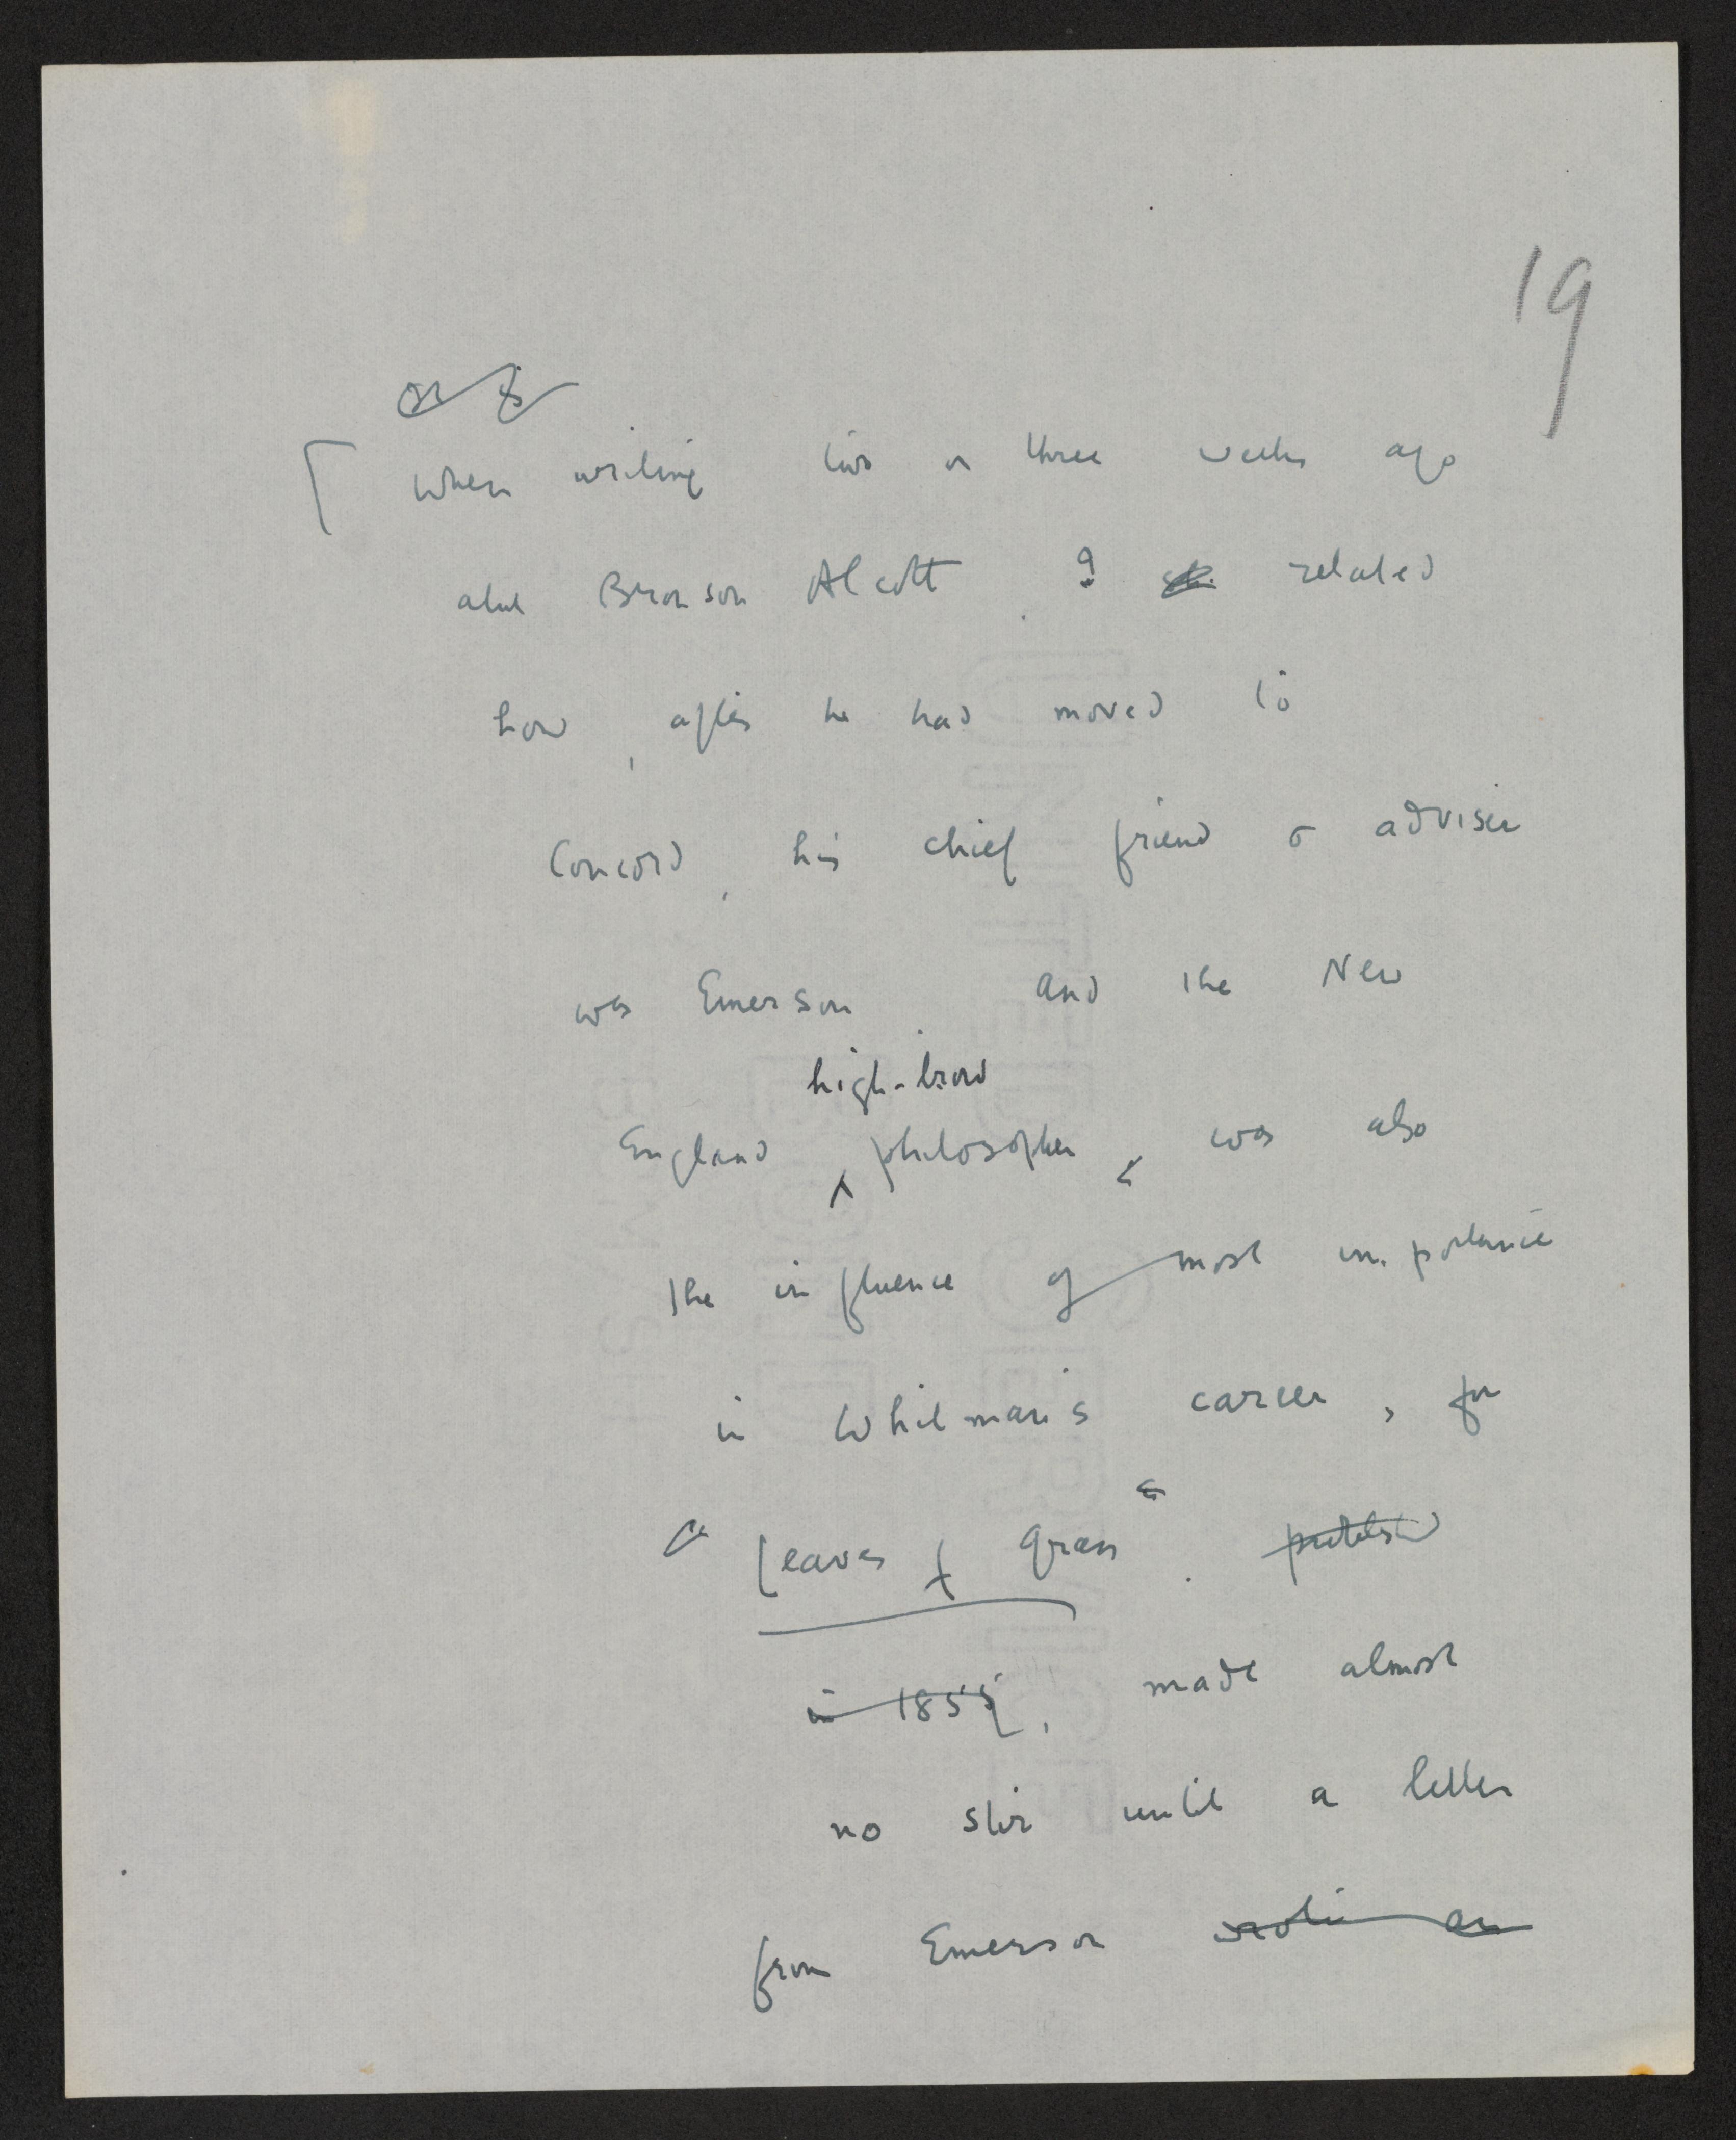 19
When writing two or three weeks ago
about Bronson Alcott, I related
how, after he had moved to
Concord, his chief friend & adviser
was Emerson, and the New
high-brow
England philosopher was also
the influence of most importance
in Whitman's career, for
"Leaves of Grass", published
in 1855, made almost
no stir until a letter
from Emerson